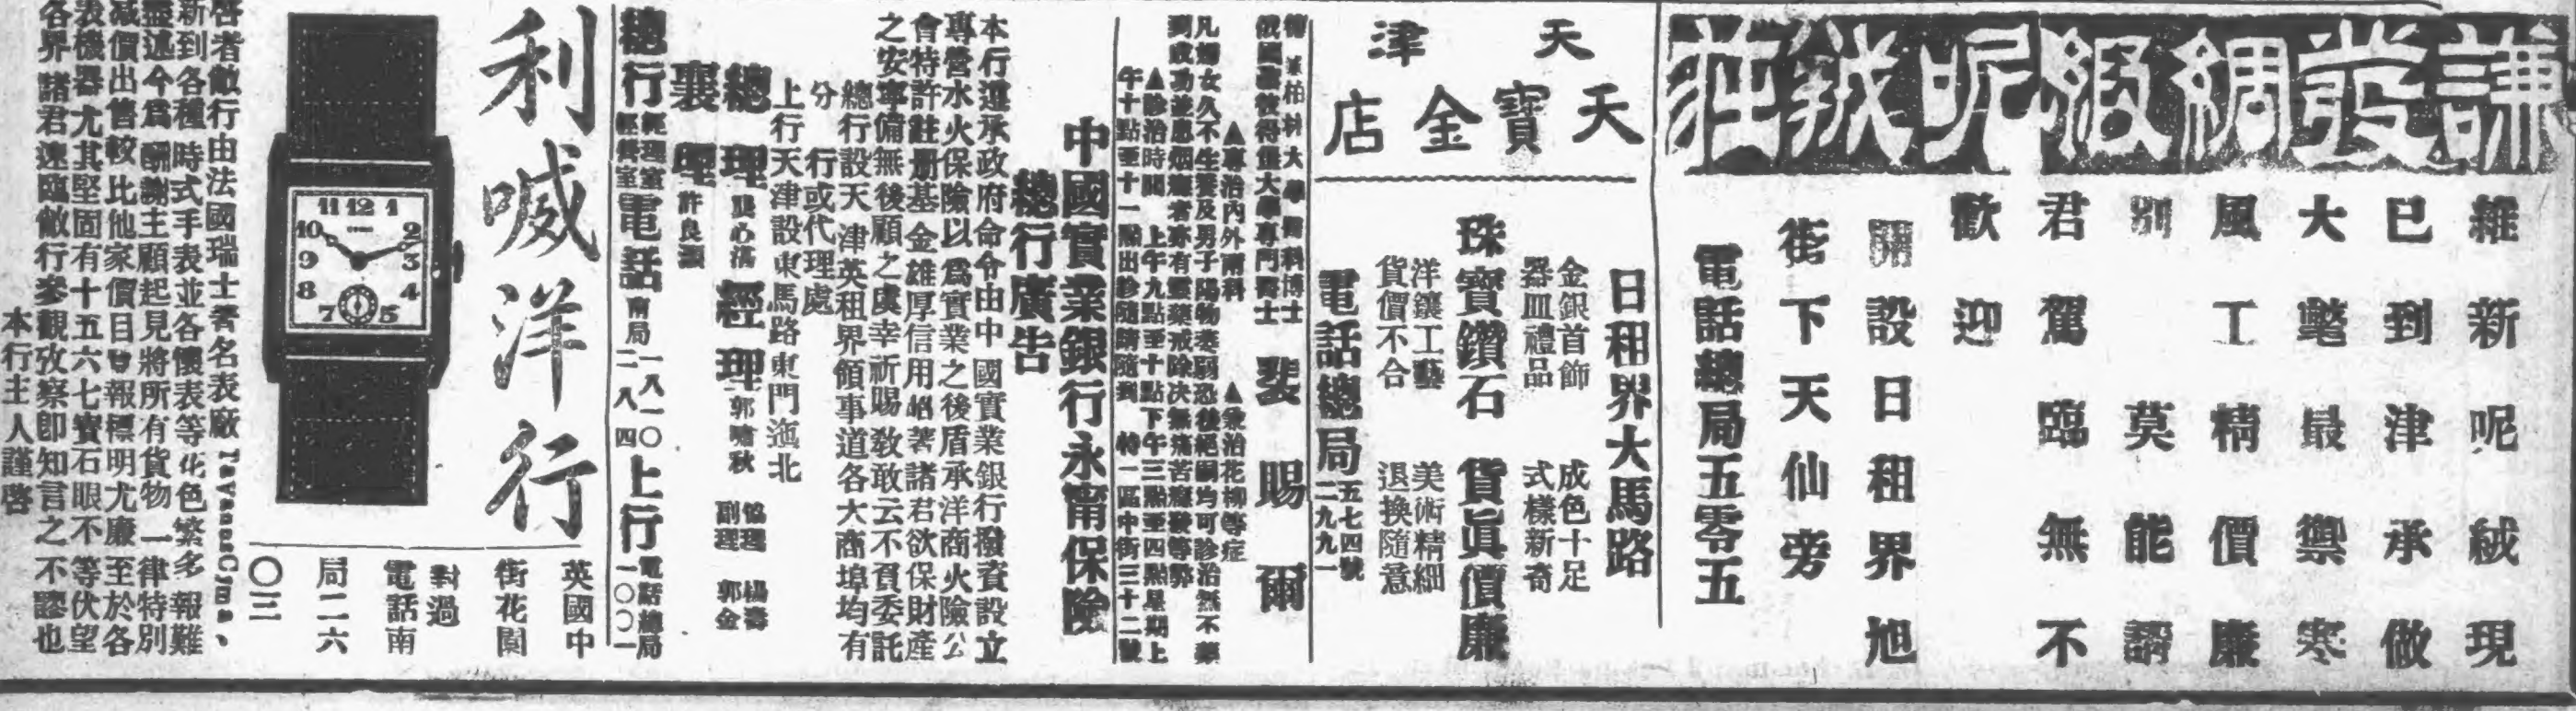 謙發綢緞呢絨莊
維新呢絨現
已到津承做
大氅最禦寒
風工精價廉
別莫能謂
君駕臨無不
歡迎
開設日租界旭
街下天仙旁
電話總局五零五
天津
天寶金店
日租界大馬路
金銀首飾 成色十足
器皿禮品 式樣新奇
珠寶鑽石 貨眞價廉
洋鑲工藝 美術精細
貨價不合 退換隨意
電話總局五七四號
二九九一
大學醫科博士
俄國政府得優大學專門醫士
婓賜爾
▲專治內外兩科 ▲兼治花柳等症
凡婦女久不生養及男子陽物萎弱恐後絕嗣均可診治無不藥
到成功並患烟癮者亦有靈藥戒除決無痛苦癮發等弊
▲診治時間 上午九點至十點下午三點至四點星期上
午十點至十一點出診隨請隨到 特一區中街三十二號
中國實業銀行永甯保險
總行廣告
本行遵承政府命令由中國實業銀行撥資設立
專營水火保險以爲實業之後盾承洋商火險公
會特許註册基金雄厚信用昭著諸君欲保財產
之安寧備無後顧之虞幸祈賜敎敢云不負委託
總行設天津英租界領事道各大商埠均有
分行或代理處
上行天津設東馬路東門迤北
總理 經理郭嘯秋 協理楊壽
副理郭金
襄理許良灝
總行經理室電話南局一八一〇
二八八四
上行電話總局
一〇〇一
利喊洋行
11 12 1
10 2
9 3
8 4
7 5
英國中
街花園
對過
電話南
局二六
〇三
啓者敝行由法國瑞士著名表廠TavannesCyma,
新到各種時式手表並各懷表等花色繁多報難
盡述今爲酬謝主顧起見將所有貨物一律特別
減價出售較比他家價目曾報標明尤廉至於各
表機器尤其堅固有十五六七寶石眼不等伏望
各界諸君速臨敝行參觀攷察卽知言之不謬也
本行主人謹啓